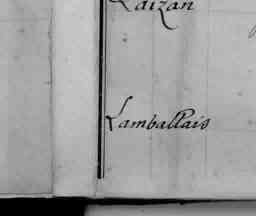 Laizan
Lamballais